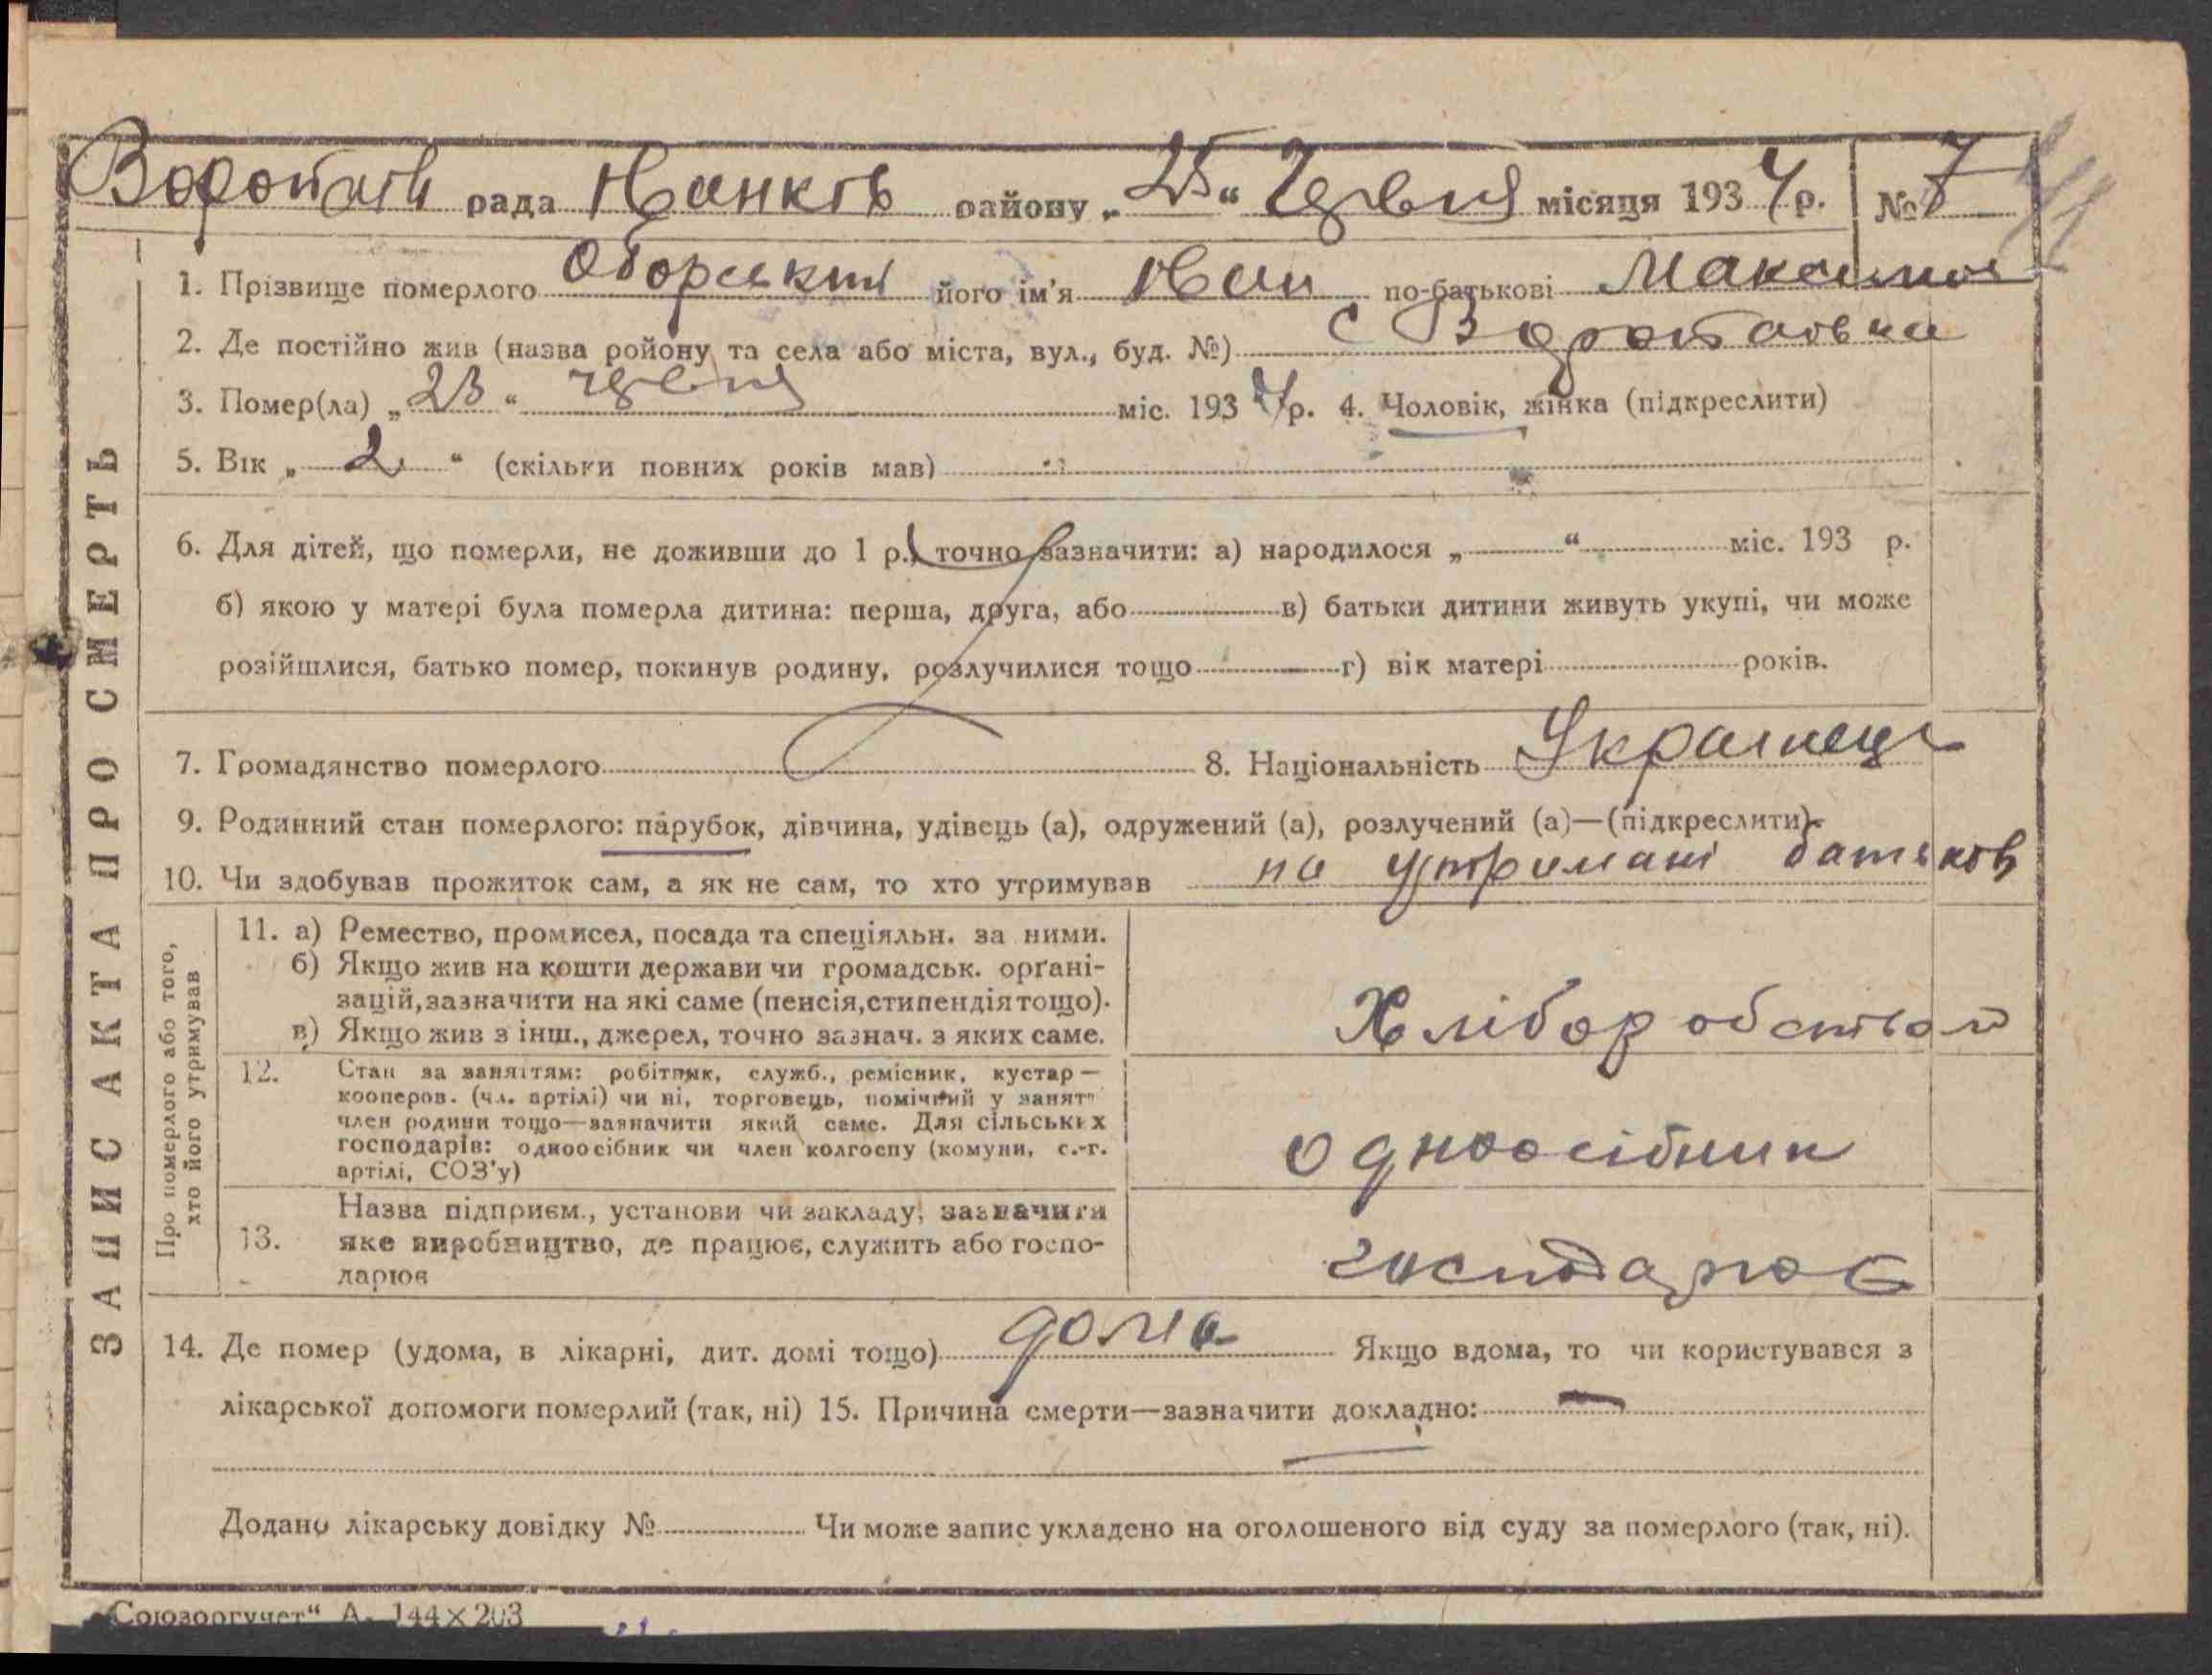 Воропаїв рада Іванків району „25“ Червня місяця 1934 р. № 7
1. Прізвище померлого Оборський його ім'я Іван по-батькові Максимов
2. Де постійно жив (назва ройону та села або міста, вул., буд. №) с Воропаївка
3. Помер(ла) „23“ червня міс. 1934 р. 4. Чоловік, жінка (підкреслити)
5. Вік „2“ (скільки повних років мав)
6. Для дітей, що померли, не доживши до 1 р., точно зазначити: а) народилося „ “ міс. 193 р.
б) якою у матері була померла дитина: перша, друга, або в) батьки дитини живуть укупі, чи може
розійшлися, батько помер, покинув родину, розлучилися тощо г) вік матері років.
7. Громадянство померлого 8. Національність Українець
9. Родинний стан померлого: парубок, дівчина, удівець (а), одружений (а), розлучений (а)—(підкреслити).
10. Чи здобував прожиток сам, а як не сам, то хто утримував на утримані батьків
ЗАПИС АКТА ПРО СМЕРТЬ
Про померлого або того,
хто його утримував
11. а) Ремество, промисел, посада та спеціяльн. за ними.
б) Якщо жив на кошти держави чи громадськ. орґані-
зацій, зазначити на які саме (пенсія, стипендія тощо).
в) Якщо жив з інш., джерел, точно зазнач. з яких саме.
Хліборобством
12. Стан за заняттям: робітник, служб., ремісник, кустар—
кооперов. (чл. артілі) чи ні, торговець, помічний у занят
член родини тощо—зазначити який саме. Для сільських
господарів: одноосібник чи член колгоспу (комуни, с.-г.
артілі, СОЗ'у)
одноосібник
13. Назва підприєм., установи чи закладу, зазначити
яке виробництво, де працює, служить або госпо-
дарює
господарює
14. Де помер (удома, в лікарні, дит. домі тощо) дома Якщо вдома, то чи користувався з
лікарської допомоги померлий (так, ні) 15. Причина смерти—зазначити докладно: —
Додано лікарську довідку № Чи може запис укладено на оголошеного від суду за померлого (так, ні).
„Союзоргучет“ А. 144×203